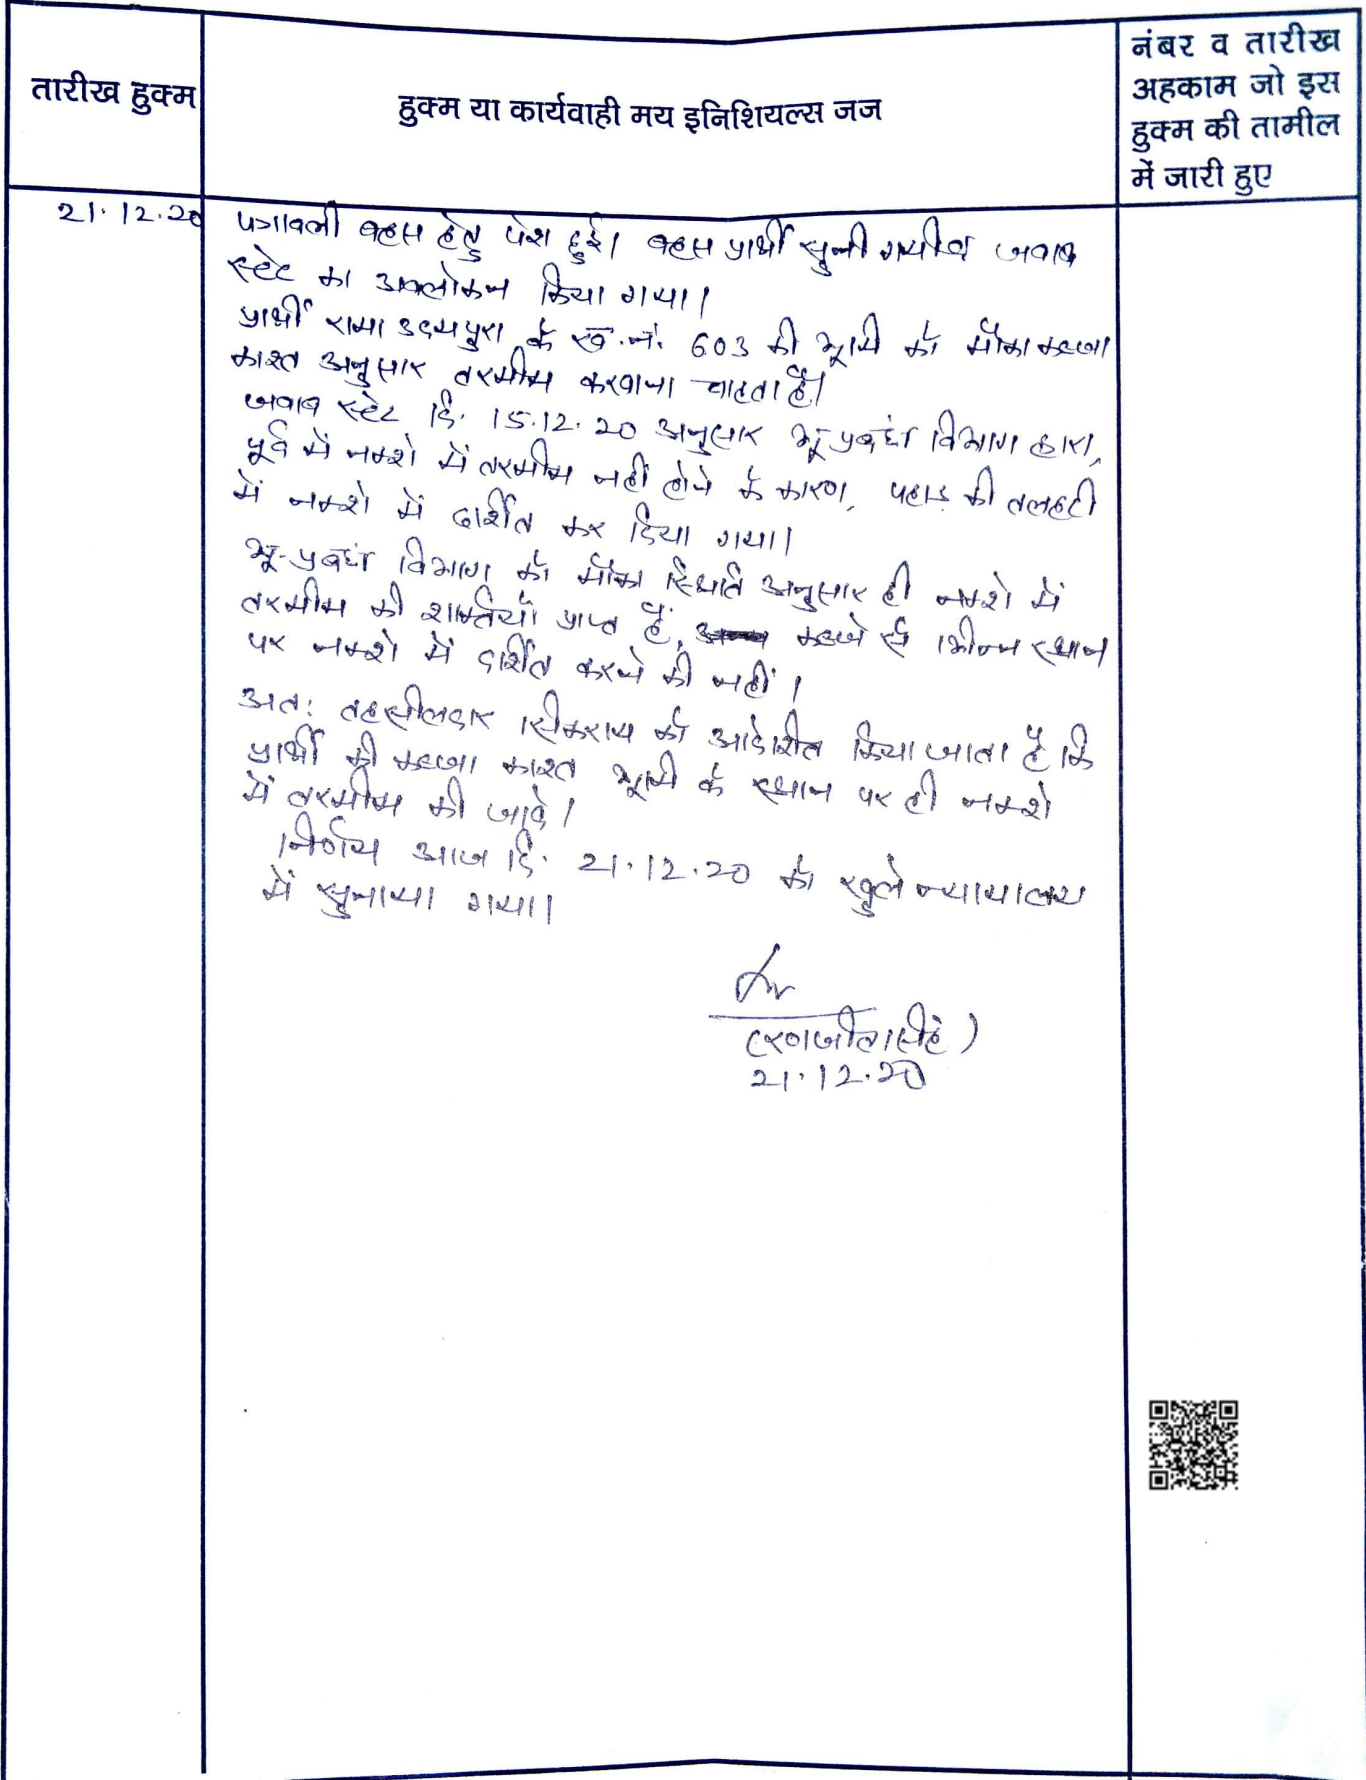 तारीख हुक्म
हुक्म या कार्यवाही मय इनिशियल्स जज
नंबर व तारीख
अहकाम जो इस
हुक्म की तामील
में जारी हुए
21.12.20
पत्रावली बहस हेतु पेश हुई। बहस प्रार्थी सुनी गयी व जवाब
स्टेट का अवलोकन किया गया।
प्रार्थी रामा उदयपुरा के ख.नं. 603 की भूमि को मौका कब्जा
काश्त अनुसार तरमीम करवाना चाहता है।
जवाब स्टेट दि. 15.12.20 अनुसार भू प्रबंध विभाग द्वारा,
पूर्व में नक्शे में तरमीम नहीं होने के कारण, पहाड़ की तलहटी
में नक्शे में दर्शित कर दिया गया।
भू-प्रबंध विभाग को मौका स्थिति अनुसार ही नक्शे में
तरमीम की शक्तियाँ प्राप्त हैं, कब्जे से भिन्न स्थान
पर नक्शे में दर्शित करने की नहीं।
अतः तहसीलदार सिकराय को आदेशित किया जाता है कि
प्रार्थी की कब्जा काश्त भूमि के स्थान पर ही नक्शे
में तरमीम की जावे।
निर्णय आज दि. 21.12.20 को खुले न्यायालय
में सुनाया गया।
(रणजीत सिंह)
21.12.20